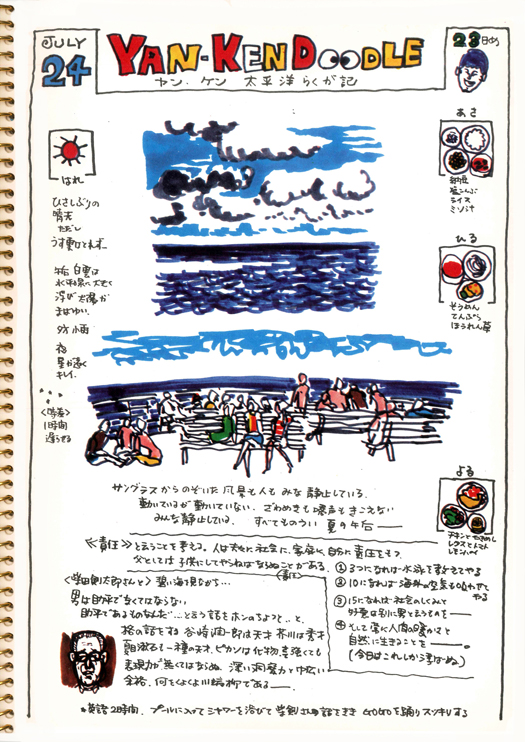 JULY
24
YAN-KEN DOODLE
ヤン・ケン 太平洋らくが記
23日め
はれ
ひさしぶりの
晴天
ただし
うす雲とれず
午后 白雲は
水平線に大きく
浮び太陽が
まばゆい
夕方 小雨
夜
星が遠く
キレイ
<時差>
1時間
遅らせる
あさ
納豆
塩こんぶ
ライス
ミソ汁
ひる
そうめん
てんぷら
ほうれん草
よる
チキンと
レモンパイ
サングラスからのぞいた風景も人もみな静止している.
動いているが動いていない. ざわめきも騒声もきこえない
みんな静止している. すべてものうい 夏の午后——
≪責任≫と云うことを考える。人は夫々に社会に、家族に、自分に責任をもつ。
父としては子供にしてやらねばならぬことがある.
(責任)
① 3つになれば水泳を教えてやる
② 10になれば海外の空気を吸わせて
やる
③ 15になれば社会のしくみと
④ そして常に人間の暖かさと
自然に生きることを——.
(今日はこれしか浮ばぬ)
碧い海を見ながら…
男は助平でなくてはならない
助平であるものなんだ…と云う話をホンのちょっと‥と、
格の話をする 谷崎潤一郎は天才 芥川は秀才
ピカソは化物、
表現力が無くてはならぬ 深い洞察力と巾広い
余裕. 何をくよくよ川端柳である——.
英語2時間. プールに入ってシャワーを浴びて
GOGOを踊りスッキリする